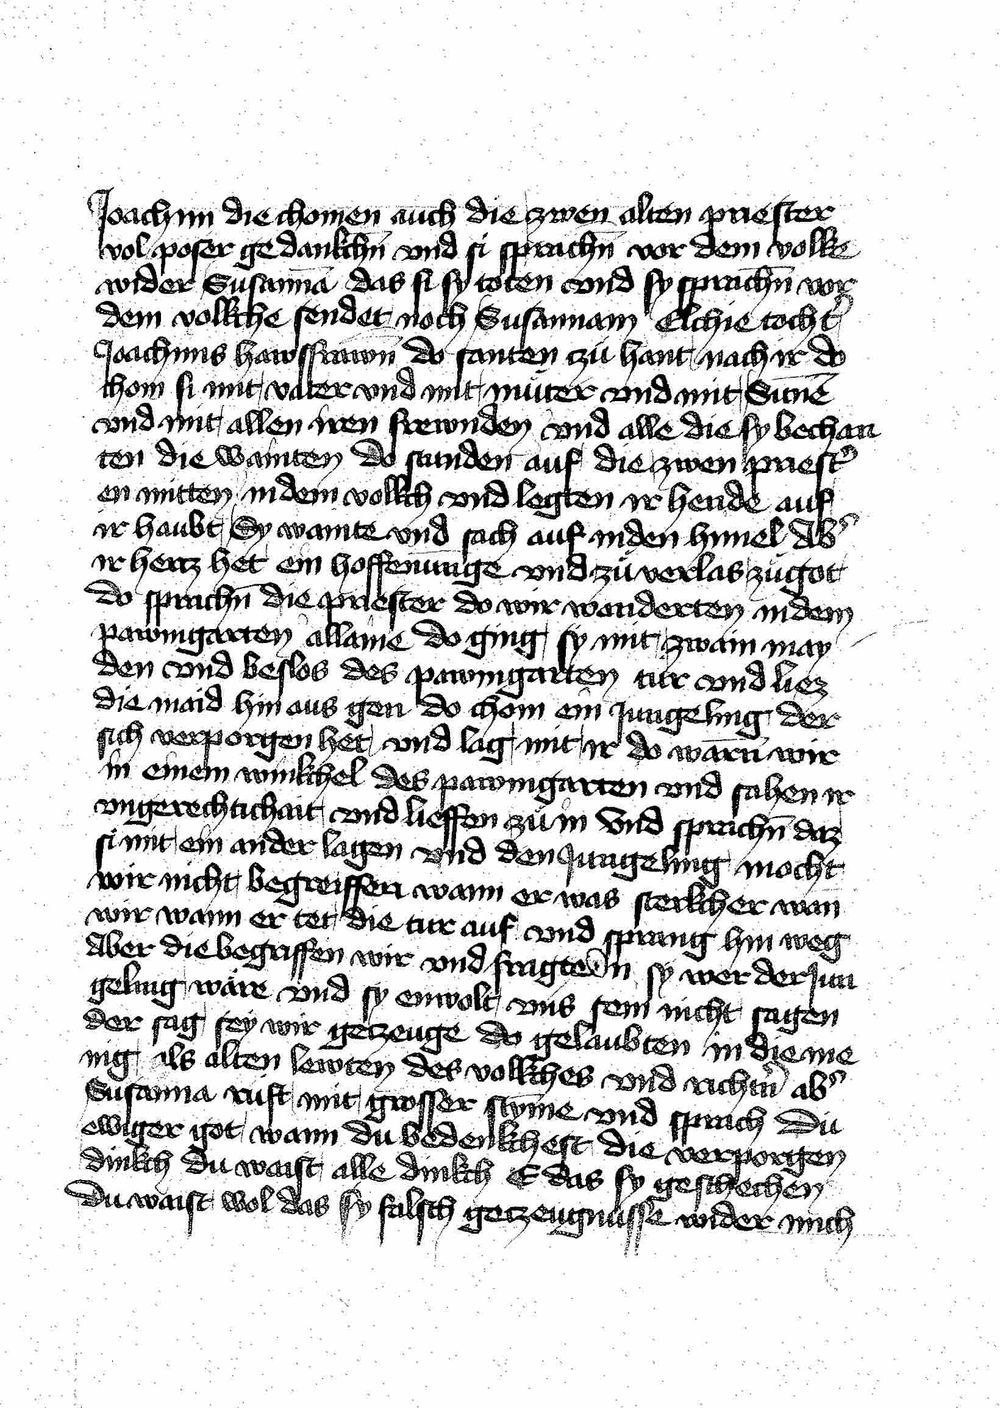 Joachim die chomen auch die zwen alten priester
vol poser gedankchn̄ vnd si sprachn̄ vor dem volke
wider Susannā das si sy toten vnd sy sprachn̄ vor
dem volkche sendet noch Susannam Elchie tocht̉
Joachims hawsfrawn̄ do santen zu hant nach ir do
chom si mit vater vnd mit muter vnd mit Sūnē
vnd mit allen iren frewnden vnd alle die sy bechan
ten die wainten do stunden auf die zwen priest̉
en mitten in dem volkch vnd legten ir hende auf
ir haubt Sy wainte vnd sach auf in den himel Ab̉
ir hertz het ein hoffenunge vnd zu verlas zu got
do sprachn̄ die priester do wir wanderten in dem
pawmgarten allaine do ging sy mit zwain may
den vnd beslos des pawmgarten tur vnd liez
die maid hin aus gen do chom ein Jungeling der
sich verporgen het vnd lag mit ir do warn̄ wir
in einem winkchel des pawmgarten vnd sahen ir
vngerechtichait vnd lieffen zu in Vnd sprachn̄ daz
si mit ein ander lagen vnd den Jungeling mocht
wir nicht begreiffen wann er was sterkcher wan̄
wir wann er tet die tur auf vnd sprang hin weg
Aber die begriffen wir vnd fragten sy wer der Jun
geling wäre vnd sy enwolt vns sein nicht sagen
der sag sey wir getzeuge do gelaubten in die me
nig als alten lewten des volkches vnd richtn̉ ab̉
Susanna ruft mit grosser stym̄e vnd sprach Du
ewiger got wann du bedenkchest die verporgen
dinkch du waist alle dinkch E das sy geschechen
Du waist wol das sy falsch getzeugnusse wider mich